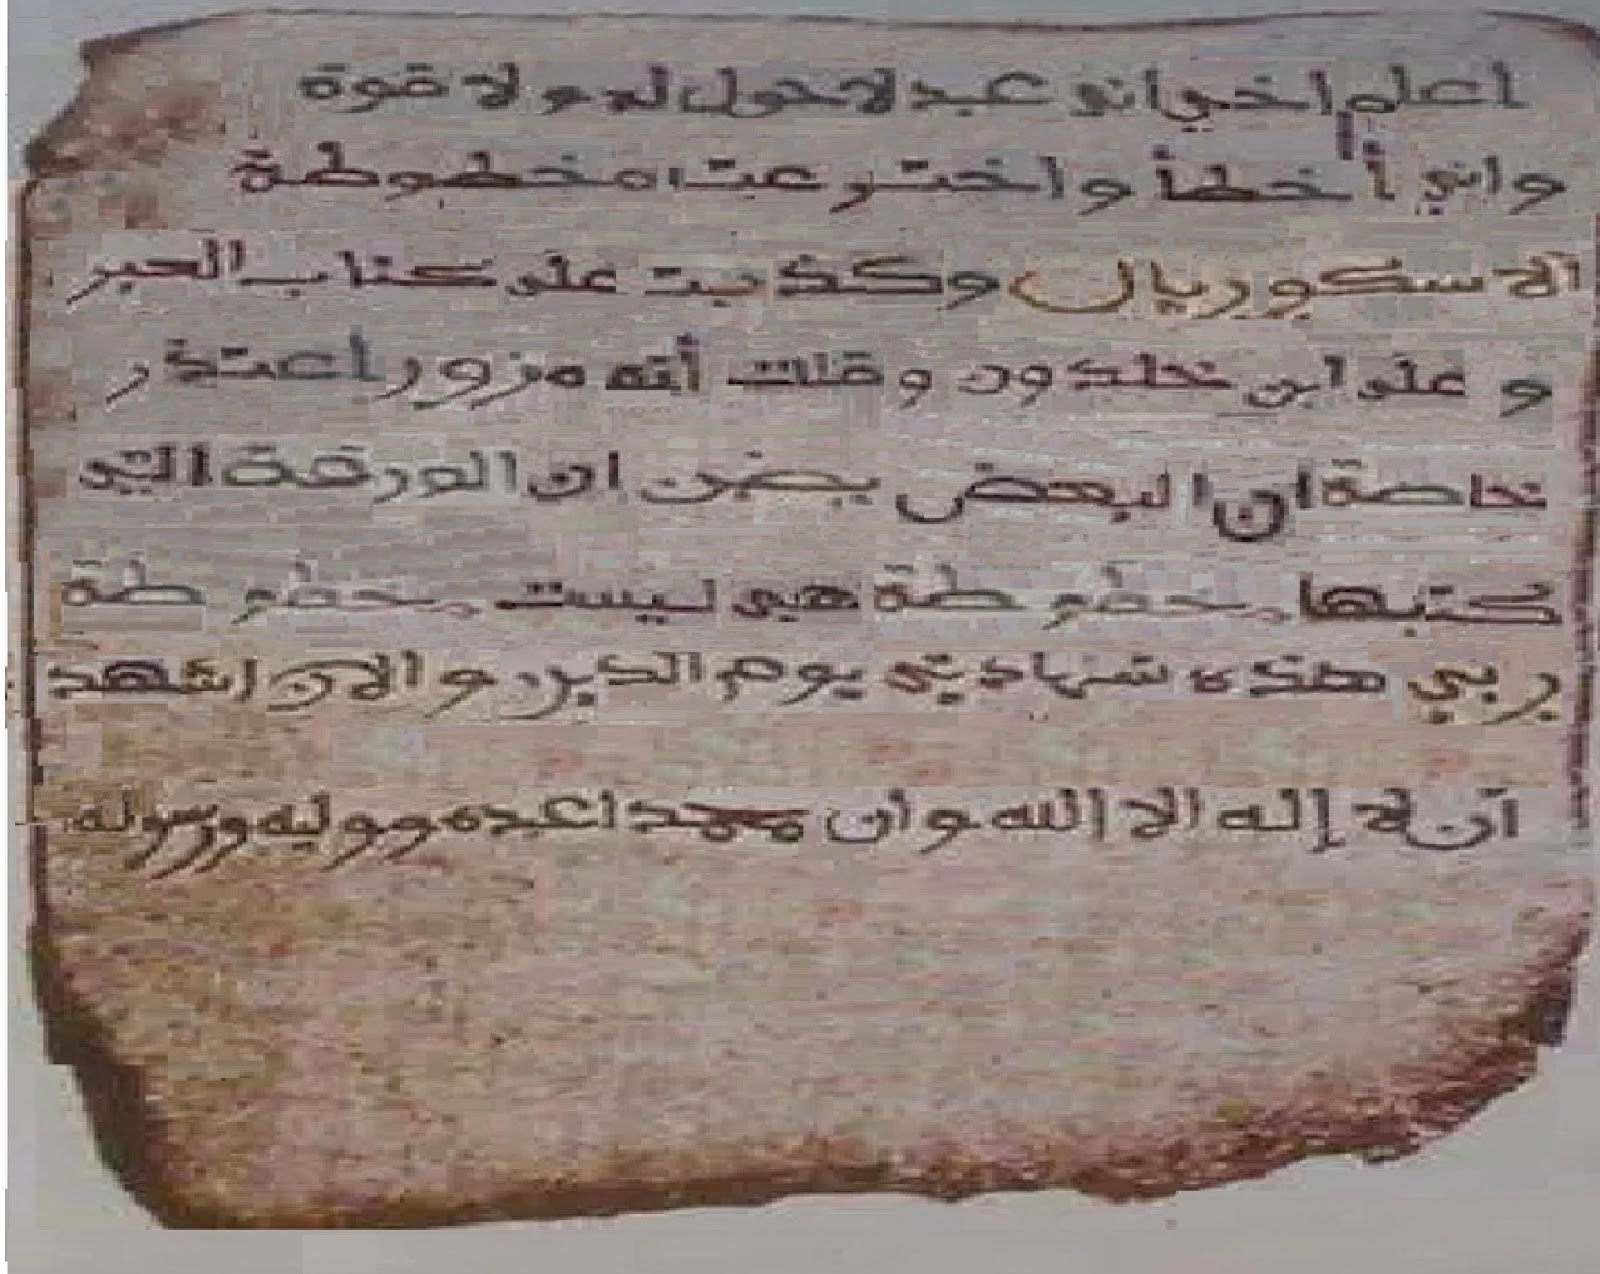 اعلم أخي اني عبد لا حول له و لا قوة
و اني أخطأ و اختر عت مخطوطة
الاسكوريال وكذبت على كتاب العبر
و على ابن خلدون و قلت أنه مزور اعتذر
خاصة ان البعض يضن ان الورقة التي
كتبها مخطوطة هي ليست مخطوطة
ربي هذه شهادتي يوم الدين و الان اشهد
أن لا إله الا الله وأن محمدا عبده ووليه ورسوله